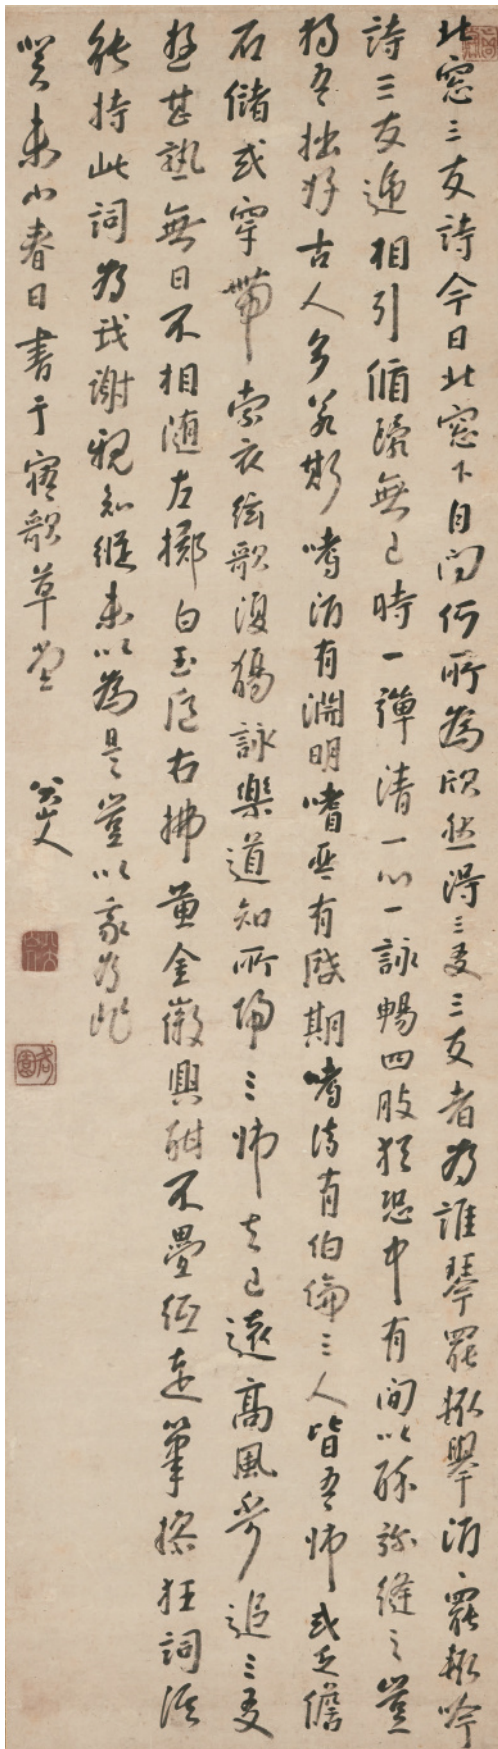 北窓三友詩今日北窓下自问何所為欣然得三友三友者為誰琴罷輒舉酒酒罷輒吟
詩三友遞相引循環無已時一彈清一心一詠暢四肢猶恐中有間以酔弥縫之豈
獨吾拙好古人多若斯嗜酒有淵明嗜琴有啟期嗜詩有伯倫三人皆吾師或乏儋
石儲或穿帶索衣絃歌復觴詠樂道知所歸三師去已遠高風不可追三友
游甚熟無日不相随左擲白玉卮右拂黃金徽興酣不疊紙走筆操狂詞誰
能持此詞為我謝親知縱未以為是豈以我為非
癸未小春日書于寤歌草堂 八大山人